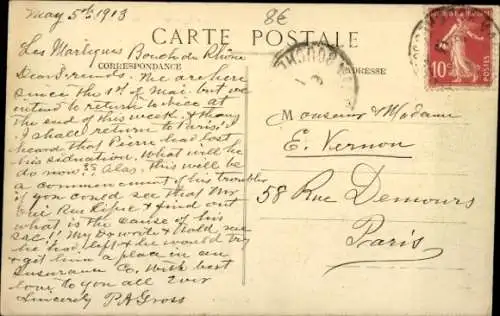 May 5th 1913
8€
CARTE POSTALE
Les Martigues Bouch du Rhône
CORRESPONDANCE
ADRESSE
Dear Friends. We are here
since the 1st of Mai but we
intend to return to Nice at
the end of this week & then
I shall return to Paris. I
heard that Pierre had lost
his situation. What will he
do now?? Alas. This will be
a commencement of his troubles
if you could see that Mr
Rue & find out
what is the cause of his
My boy wrote & told me
he had left & he would try
& get him a place in an
Insurance Co. With best
love to you all Ever
Sincerely P A Gross
Monsieur & Madame
E. Vernon
58 Rue Demours
Paris
10c
POSTES